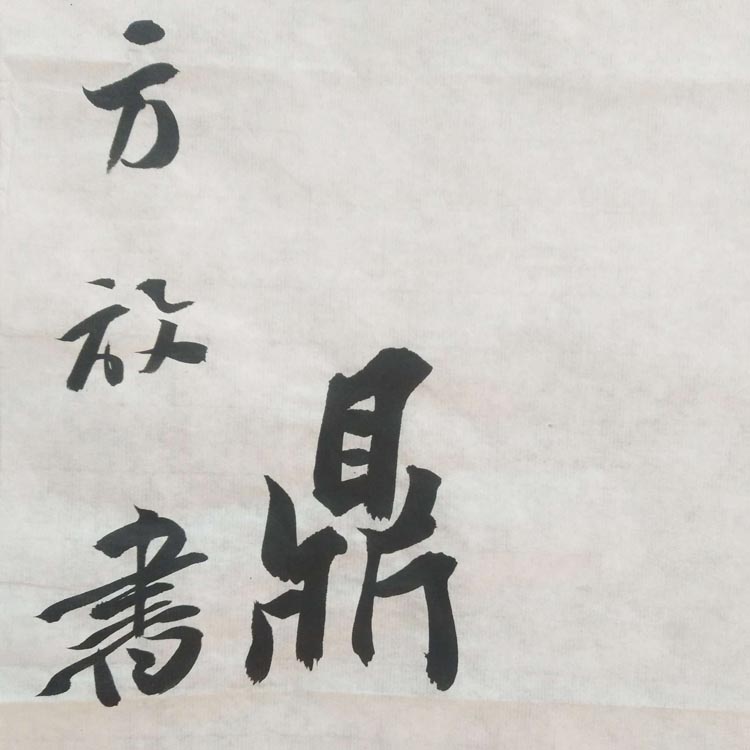 鼎
方放書